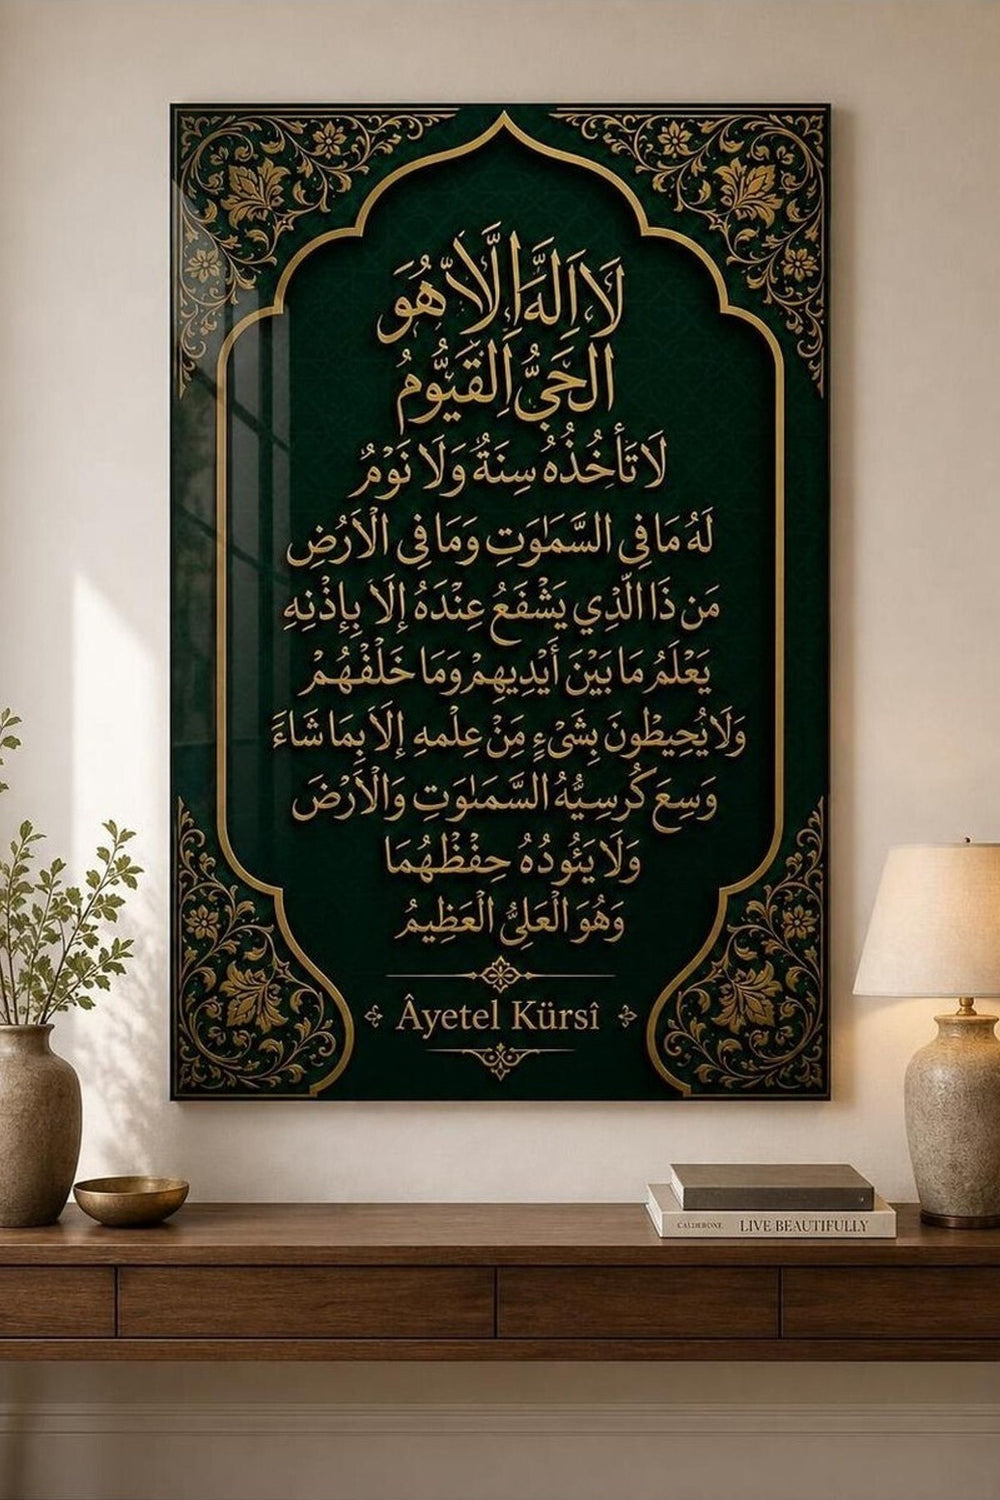 لَا اِلٰهَ اِلَّا هُوَ
الْحَيُّ الْقَيُّومُ
لَا تَأْخُذُهُ سِنَةٌ وَلَا نَوْمٌ
لَهُ مَا فِي السَّمٰوٰتِ وَمَا فِي الْاَرْضِ
مَن ذَا الَّذِي يَشْفَعُ عِنْدَهُ إِلَّا بِإِذْنِهِ
يَعْلَمُ مَا بَيْنَ أَيْدِيهِمْ وَمَا خَلْفَهُمْ
وَلَا يُحِيطُونَ بِشَيْءٍ مِنْ عِلْمِهِ إِلَّا بِمَا شَاءَ
وَسِعَ كُرْسِيُّهُ السَّمٰوٰتِ وَالْاَرْضَ
وَلَا يَئُودُهُ حِفْظُهُمَا
وَهُوَ الْعَلِيُّ الْعَظِيمُ
Âyetel Kürsî
LIVE BEAUTIFULLY